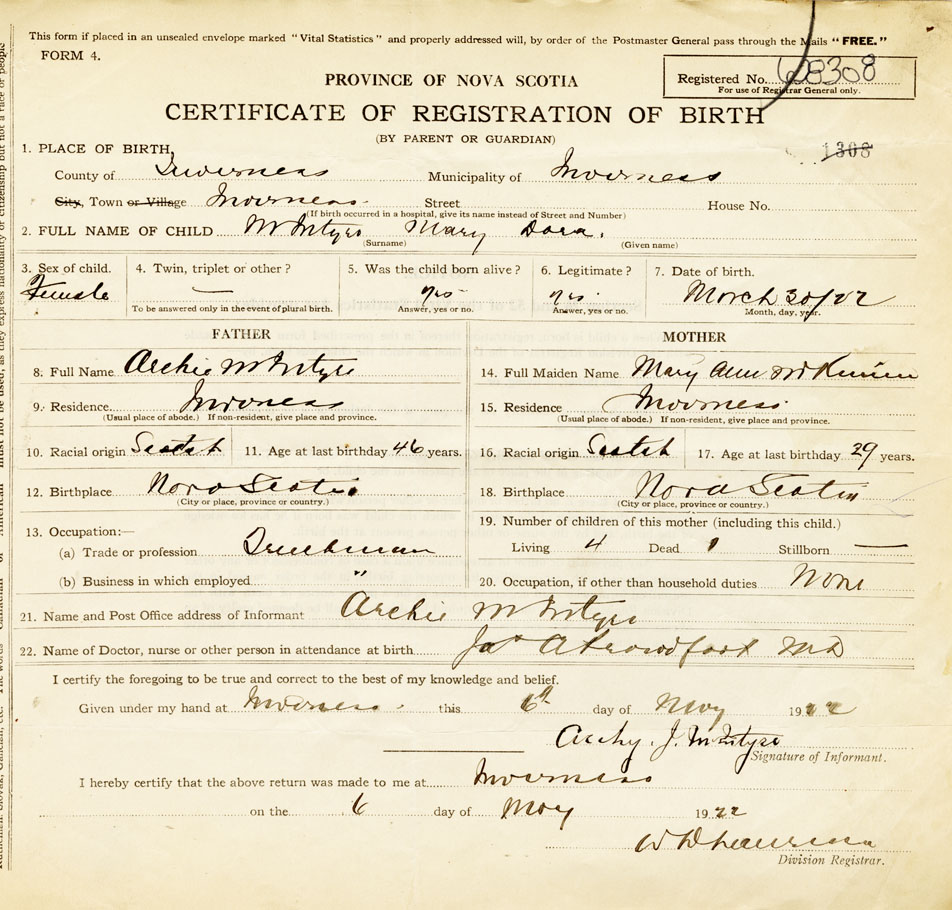 This form if placed in an unsealed envelope marked "Vital Statistics" and properly addressed will, by order of the Postmaster General pass through the Mails "FREE."
FORM 4.
Registered No. 68308
For use of Registrar General only.
PROVINCE OF NOVA SCOTIA
CERTIFICATE OF REGISTRATION OF BIRTH
(BY PARENT OR GUARDIAN)
1308
1. PLACE OF BIRTH,
County of Inverness Municipality of Inverness
City, Town or Village Inverness Street House No.
(If birth occurred in a hospital, give its name instead of Street and Number)
2. FULL NAME OF CHILD McIntyre Mary Dora.
(Surname) (Given name)
3. Sex of child. 4. Twin, triplet or other? 5. Was the child born alive? 6. Legitimate? 7. Date of birth.
Female — yes yes. March 30/22
To be answered only in the event of plural birth. Answer, yes or no. Answer, yes or no. Month, day, year.
FATHER MOTHER
8. Full Name Archie McIntyre 14. Full Maiden Name Mary Ann
9. Residence Inverness 15. Residence Inverness
(Usual place of abode.) If non-resident, give place and province. (Usual place of abode.) If non-resident, give place and province.
10. Racial origin Scotch 11. Age at last birthday 46 years. 16. Racial origin Scotch 17. Age at last birthday 39 years.
12. Birthplace Nova Scotia 18. Birthplace Nova Scotia
(City or place, province or country.) (City or place, province or country.)
13. Occupation:— 19. Number of children of this mother (including this child.)
(a) Trade or profession Truckman Living 4 Dead 1 Stillborn —
(b) Business in which employed " 20. Occupation, if other than household duties None
21. Name and Post Office address of Informant Archie McIntyre
22. Name of Doctor, nurse or other person in attendance at birth MD
I certify the foregoing to be true and correct to the best of my knowledge and belief.
Given under my hand at Inverness this 6th day of May 1922
Archy. J. McIntyre
Signature of Informant.
I hereby certify that the above return was made to me at Inverness
on the 6 day of May 1922
Division Registrar.